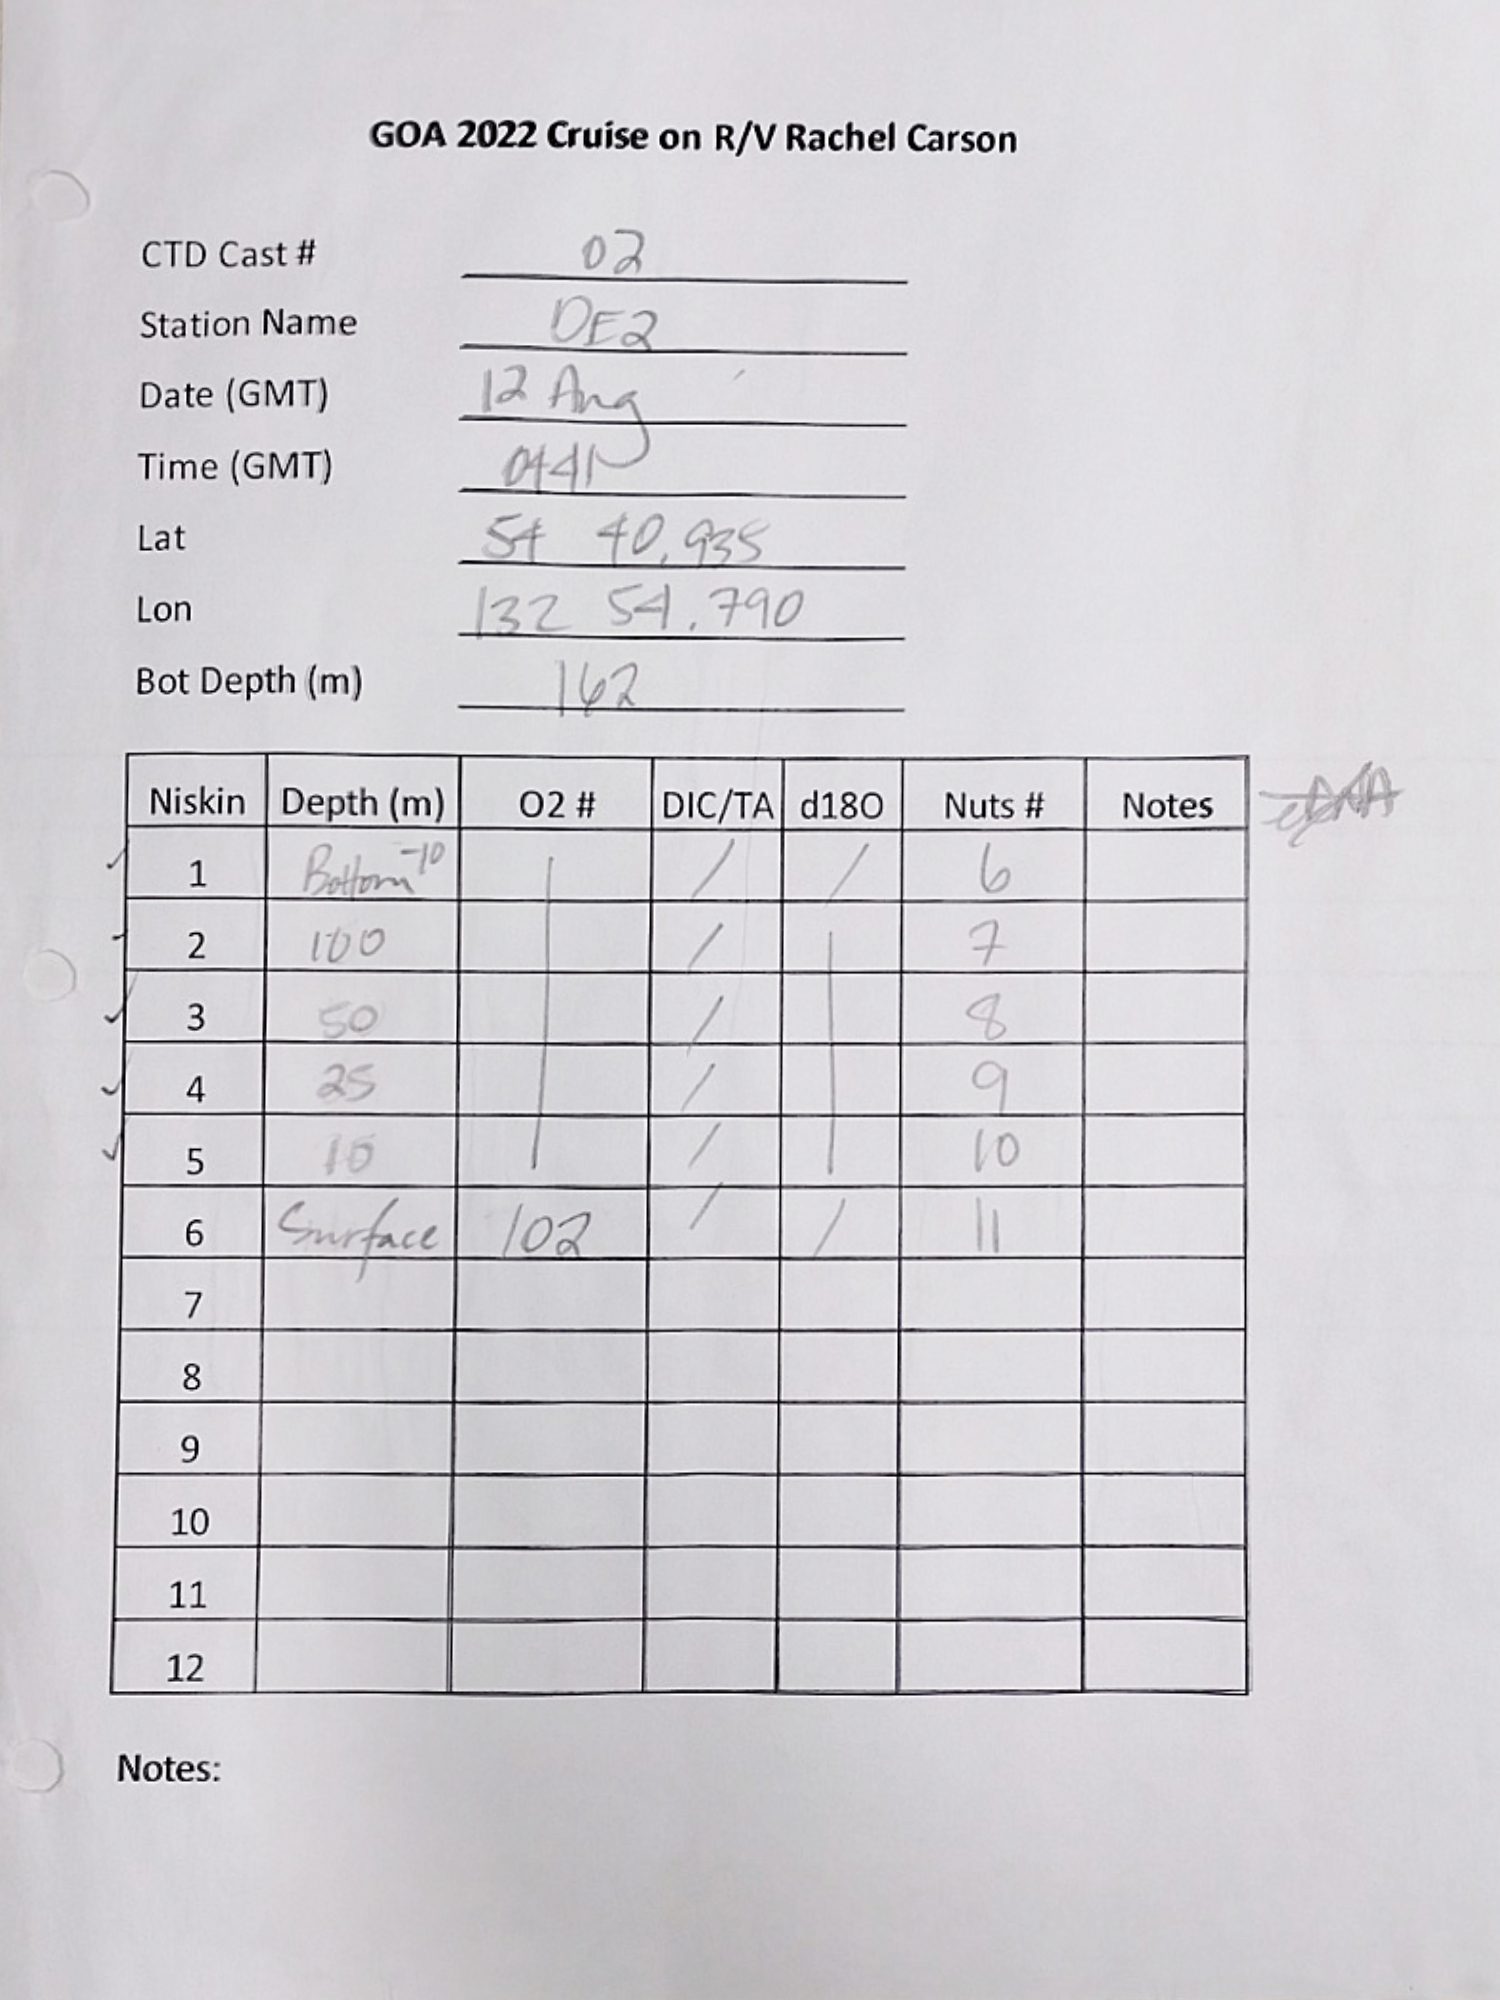 GOA 2022 Cruise on R/V Rachel Carson
CTD Cast # 02
Station Name DE2
Date (GMT) 12 Aug
Time (GMT) 0441
Lat 54 40.935
Lon 132 54.790
Bot Depth (m) 162
Niskin Depth (m) O2 # DIC/TA d18O Nuts # Notes eDNA
1 Bottom -10 / / 6
2 100 / 7
3 50 / 8
4 25 / 9
5 10 / 10
6 Surface 102 / / 11
7
8
9
10
11
12
Notes: